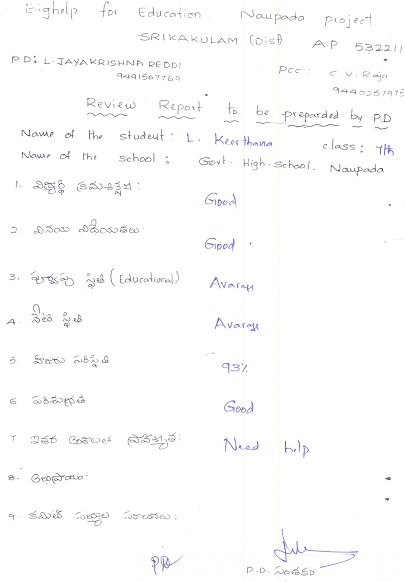 Bighelp for Education Naupada project
SRIKAKULAM (Dist) A.P 532211
P.D: L. JAYAKRISHNA REDDI PCC: C.V. Raja
9491567769
Review Report to be preparded by P.D
Name of the student: L. Keerthana class: 7th
Name of the school: Govt. High-School. Naupada
1. విద్యార్థి క్రమశిక్షణ: Good
2 వినయ విధేయతలు Good
3. పూర్వపు స్థితి (Educational) Avarage
4. నేటి స్థితి Avarage
5. హాజరు పరిస్థితి 93%
6 పరిశుభ్రత Good
7 ఇతర Need help
8. అభిప్రాయం:
9. కమిటీ సభ్యుల
P.D. సంతకం